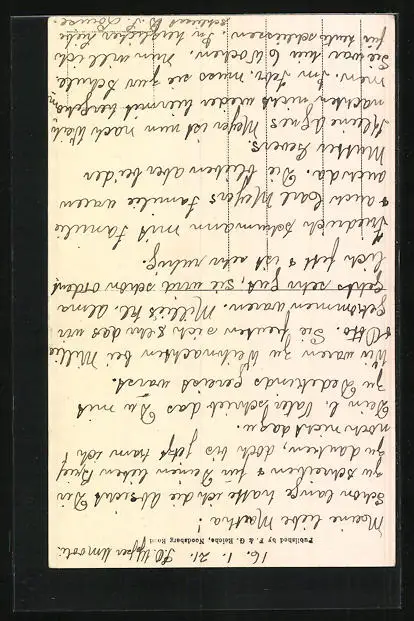 16. 1. 21.
Published by P. & G. Reiche, Noodsberg Road
Meine liebe Martha!
Schon lange hatte ich die Absicht Dir
zu schreiben & für Deinen lieben Brief
zu danken, doch bis jetzt kam ich
noch nicht dazu.
Dein l. Vater schrieb das Du mit
zu Dedekinds gereist warst.
Wir waren zu Weihnachten bei Millie
& Otto. Sie freuten sich sehr das wir
gekommen waren. Millies kl. Alma
geht's sehr gut, sie wird schon ordent
lich fett & ist sehr ruhig.
Friedrich Schumann mit Familie
& auch Carl Meyers Familie waren
auch da. Die blieben aber bei der
Mutter
Kleine Agnes Meyer ist nun nach Weih
nachten nicht wieder hiermit hergekom
men. Im Febr. muss sie zur Schule.
Sie war nun 6 Wochen. Nun will ich
für heute schliessen. In herzlicher Liebe